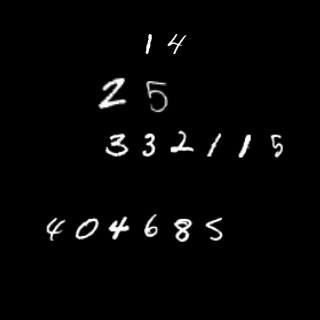 14
25
332115
404685